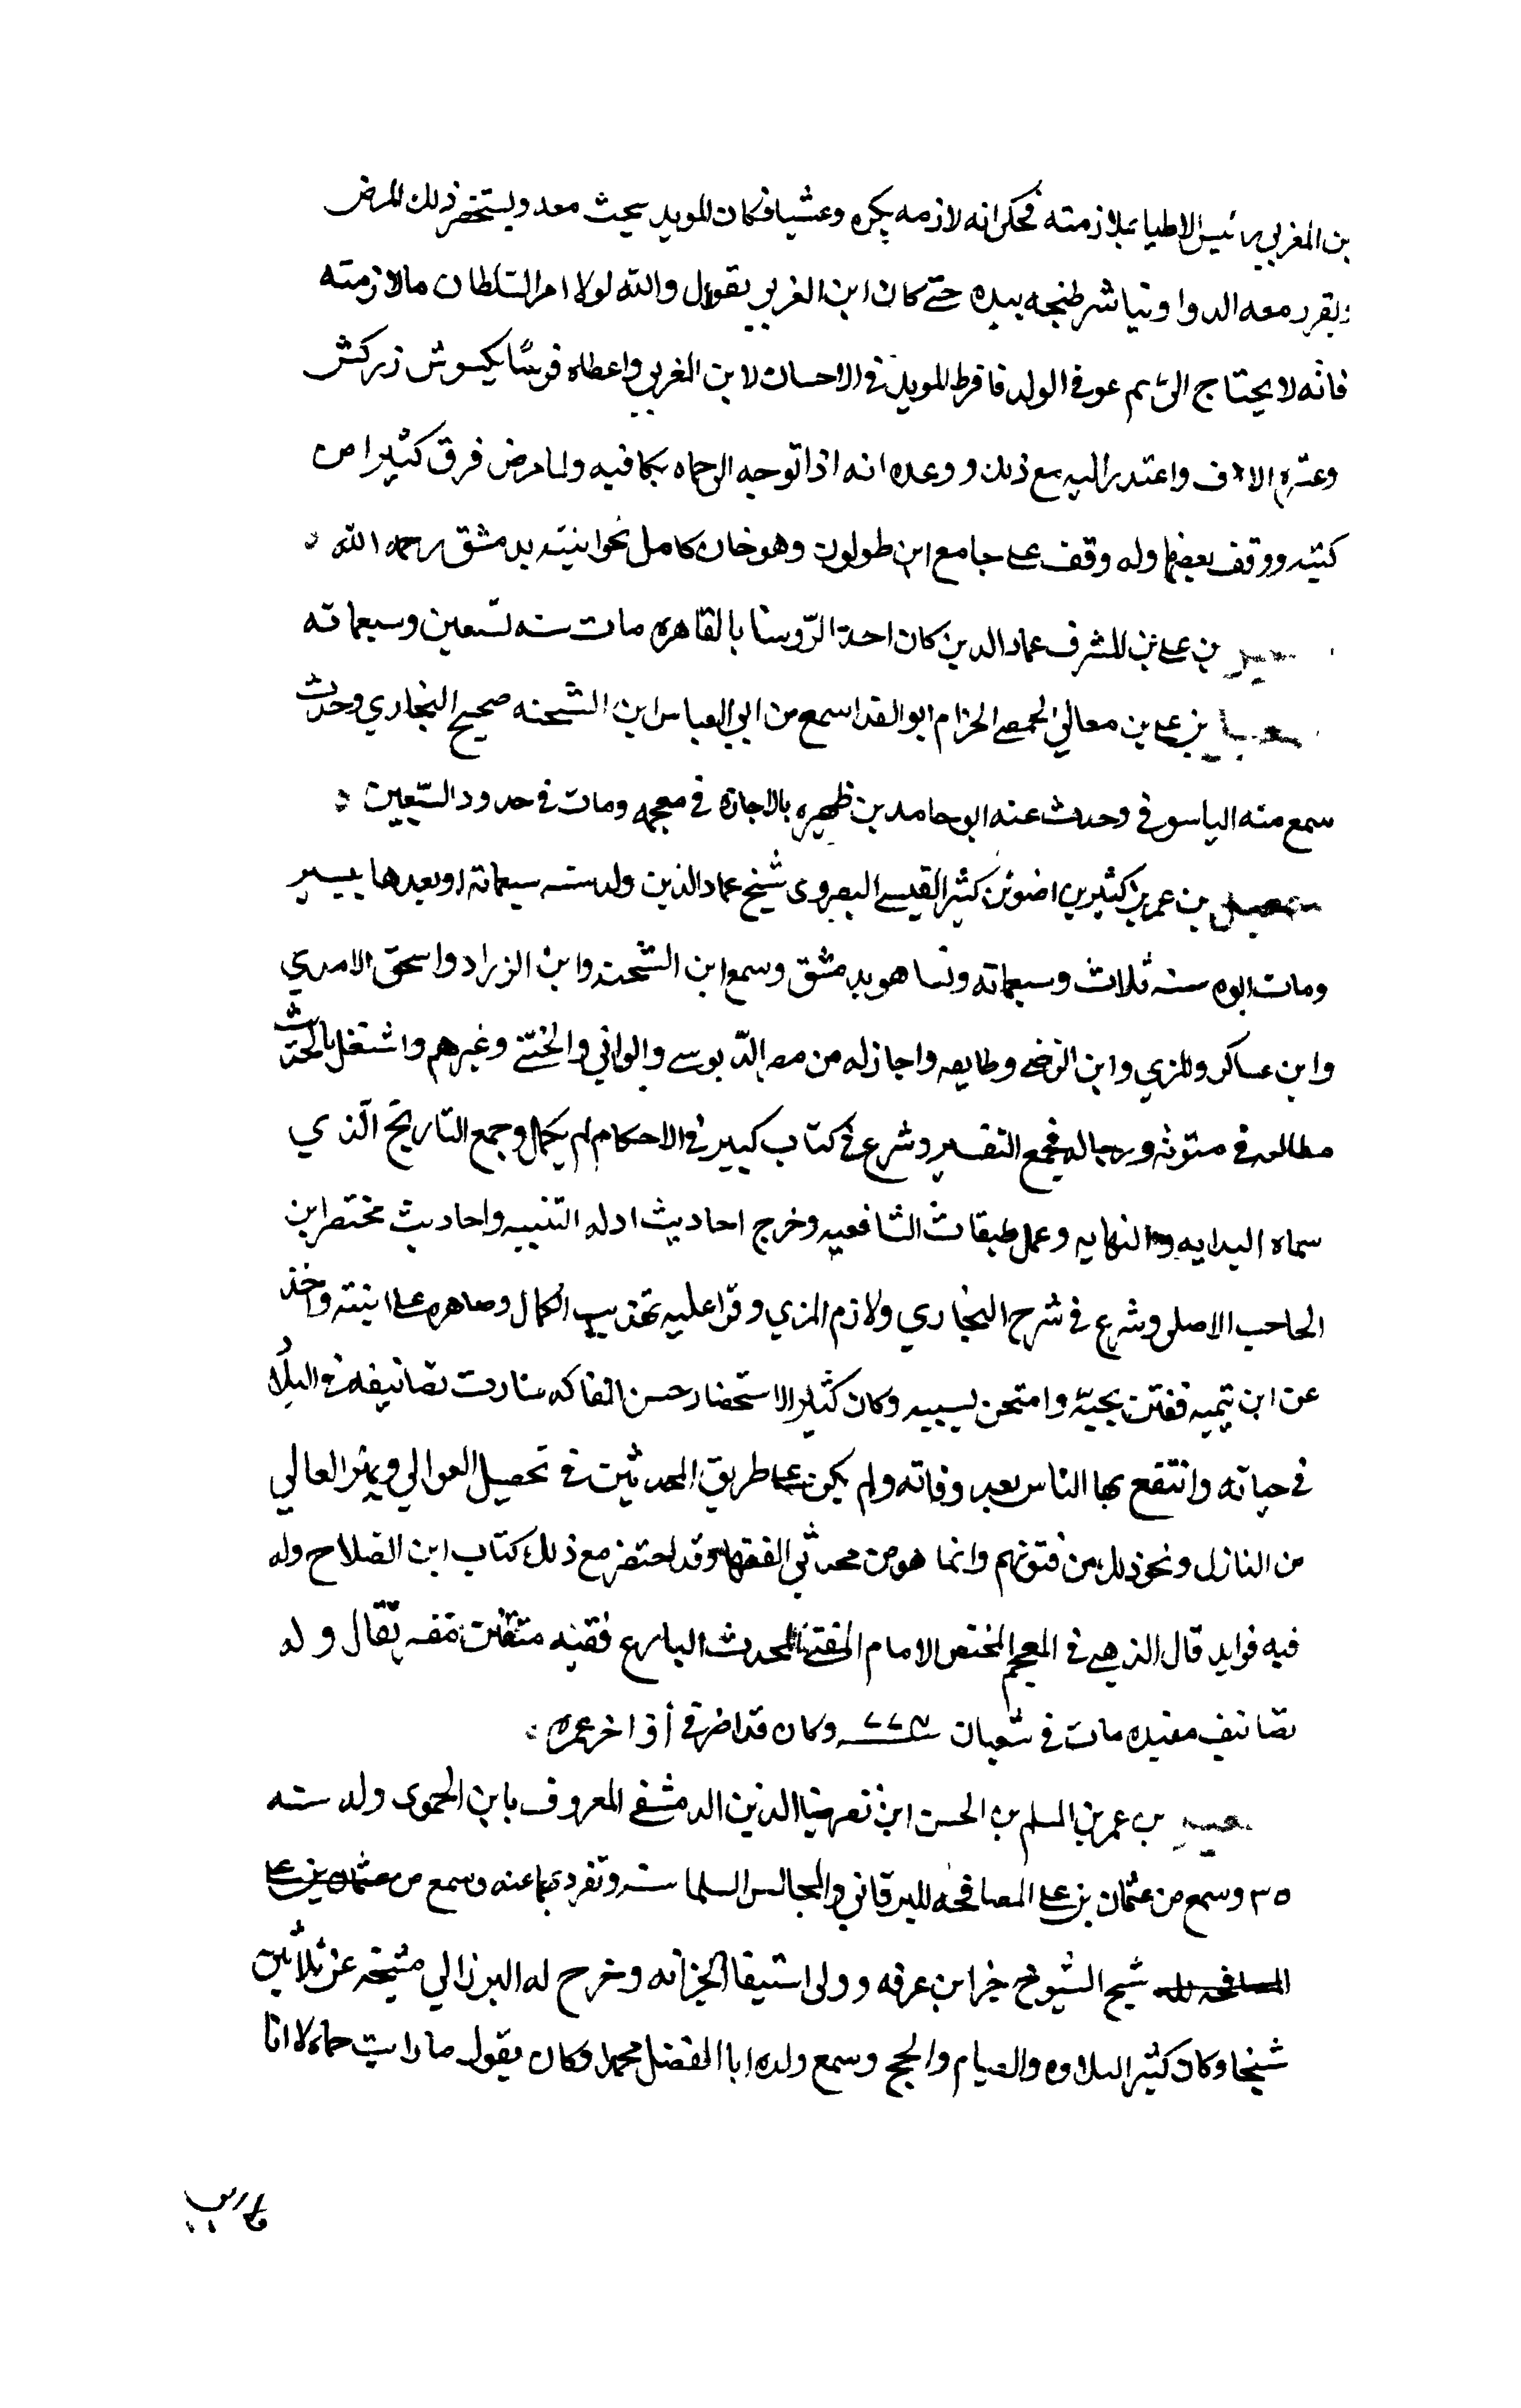 بن المغربي رئيس الاطبا بملازمته فحكى انه لازمه بكره وعشيا فكان المويد يبحث معه ويستحضر ذلك المرض
ويقرر معه الدوا وتباشر طبخه بيده حتى كان ابن المغربي يقول والله لولا امر السلطان ما لازمته
فانه لا يحتاج الي ثم عوفي الولد فافرط المويد في الاحسان لابن المغربي واعطاه فرسا بكبوش زركش
وعشره الاف واعتذر اليه مع ذلك ووعده انه اذا توجه الى حماه يكافيه ولما مرض فرق كثيرا من
كتبه ووقف بعضها وله وقف على جامع ابن طولون وهو خان كامل بدمشق رحمه الله
بن علي بن المشرف عماد الدين كان احد الروسا بالقاهره مات سنه تسعين وسبعماته
بن علي بن معالي الحمصي الحزام ابو الفدا سمع من ابي العباس ابن الشحنه صحيح البخاري وحدث
سمع منه الياسوفي وحدث عنه ابو حامد بن ظهيره بالاجازه في معجمه ومات في حدود السبعين
بن عمر بن كثير بن ضو بن كثير القيسي البصروي شيخ عماد الدين ولد سنه سبعمائة او بعدها بيسير
ومات ابوه سنه ثلاث وسبعماته ونسا هو بدمشق وسمع ابن الشحنه وابن الزراد واسحق الامدي
وابن عساكر والمزي وابن الرضي وطايفه واجاز له من مصر الدبوسي والواني والختني وغيرهم واشتغل بالحديث
مطالعه في متونه ورجاله فجمع التفسير وشرع في كتاب كبير في الاحكام لم يكمل وجمع التاريخ الذي
سماه البدايه والنهايه وعمل طبقات الشافعيه وخرج احاديث ادله التنبيه واحاديث مختصر ابن
الحاجب الاصلي وشرع في شرح البخاري ولازم المزي وقرا عليه تهذيب الكمال وصاهره على ابنته واخذ
عن ابن تيميه ففتن بحبه وامتحن بسببه وكان كثير الاستحضار حسن المفاكهه سارت تصانيفه في البلاد
في حياته وانتفع بها الناس بعد وفاته ولم يكن على طريق المحدثين في تحصيل العوالي وتميز العالي
من النازل ونحو ذلك من فنونهم وانما هو من محدثي الفقها وقد اختصر مع ذلك كتاب ابن الصلاح وله
فيه فوايد قال الذهبي في المعجم المختص الامام المفتي المحدث البارع فقيه متفنن نقال وله
تصانيف مفيده مات في شعبان سنه ٧٧٤ وكان قد اضر في أواخر عمره
بن عمر بن المسلم بن الحسن ابن نصر ضيا الدين الدمشقي المعروف بابن الحموي ولد سنه
٣٥ وسمع من عثمان بن علي المصافحه للبرقاني والمجالس السلماسيه وتفرد بها عنه وسمع من عثمان بن علي
المصافحه لله شيخ الشيوخ جز ابن عرفه وولى استيفا الخزانه وخرج له البرزالي مشيخه عن ثلاثين
شيخا وكان كثير التلاوه والصيام والحج وسمع ولده ابا الفضل محمدا وكان يقول ما رايت حماه الا انا